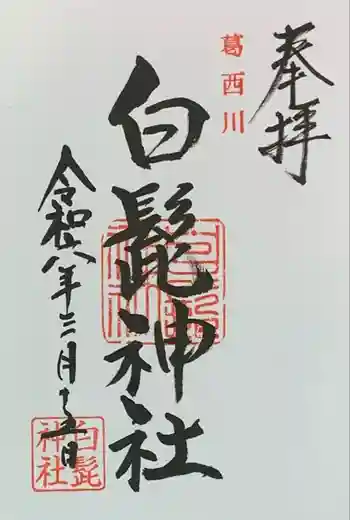 奉拝
葛西川
白髭神社
令和六年三月十五日
白髭
神社